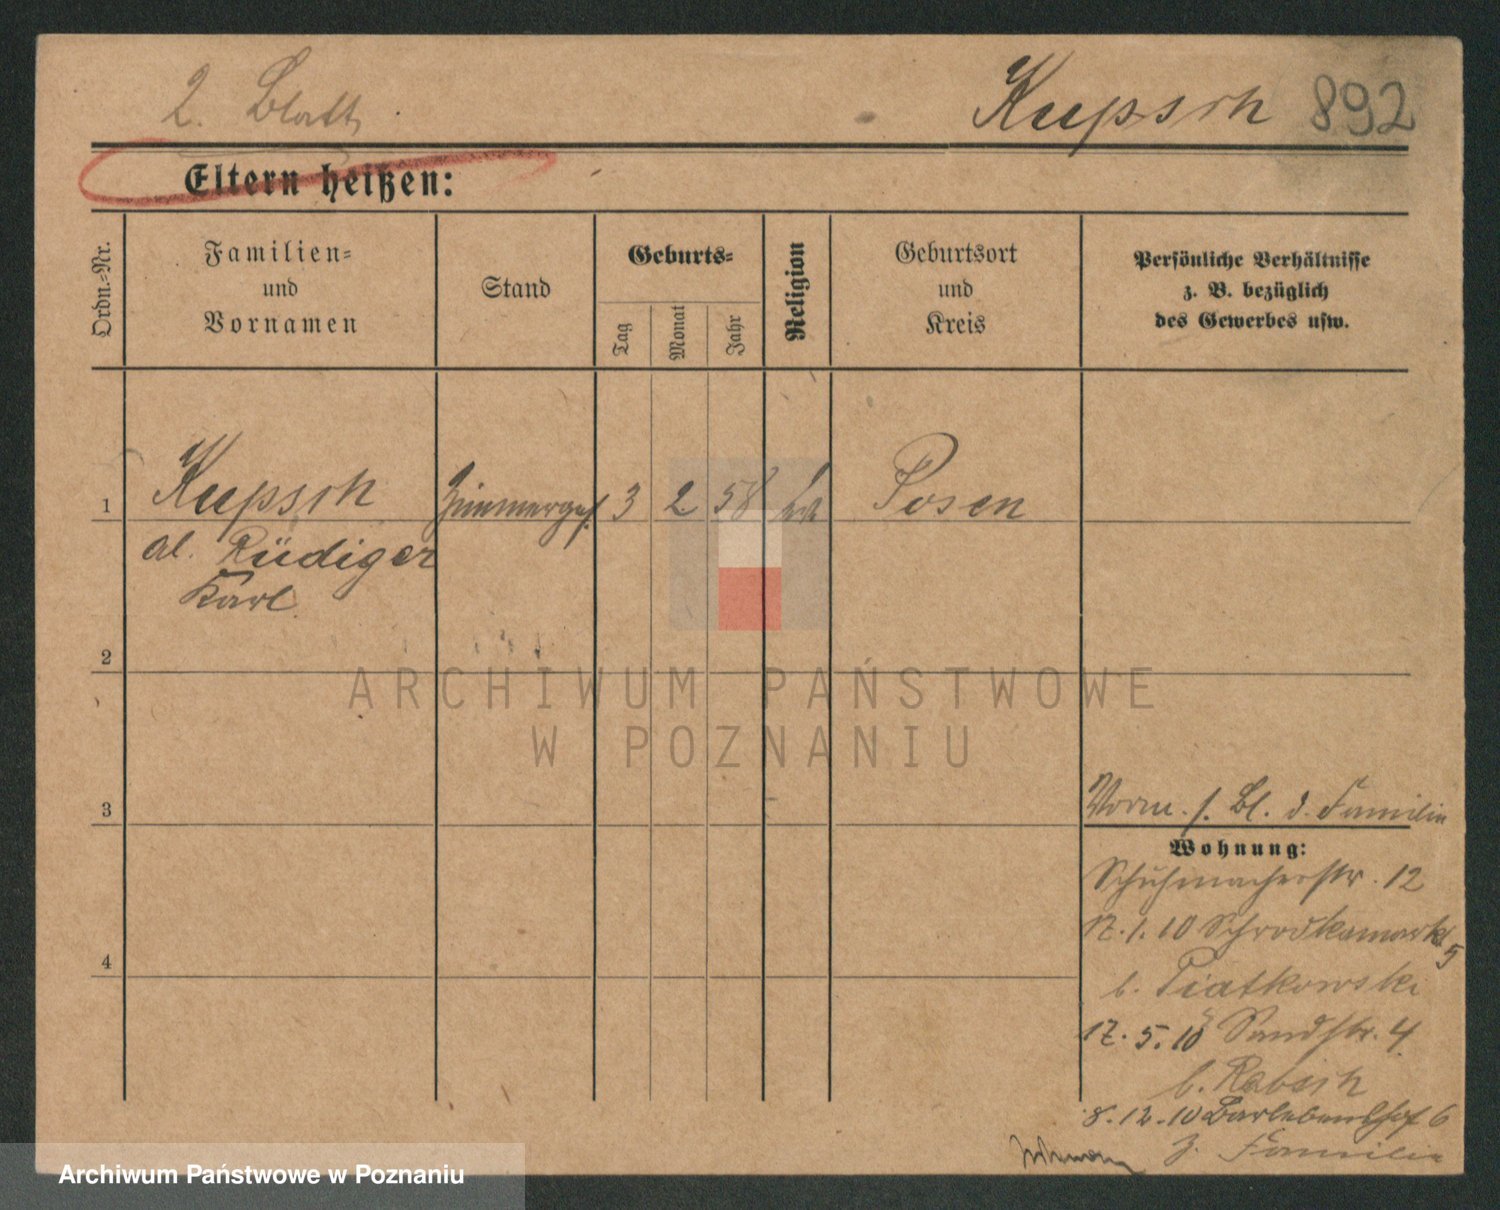 2. Blatt.
Kupsch 892
Eltern heißen:
Ordn.-Nr.
Familien-
und
Vornamen
Stand
Geburts-
Tag
Monat
Jahr
Religion
Geburtsort
und
Kreis
Persönliche Verhältnisse
z. B. bezüglich
des Gewerbes usw.
1 Kupsch Zimmerges. 3 2 58 Posen
al. Rüdiger
Karl
2
ARCHIWUM PAŃSTWOWE
W POZNANIU
3
Vorm. s. Bl. d. Familie
Wohnung:
Schuhmacherstr. 12
17.1.10 Schrodkamarkt
5
4
b. Piatkowski
17.5.10 Sandstr. 4
b. Rabsch
8.12.10 Barlebenshof 6
z. Familie
Archiwum Państwowe w Poznaniu